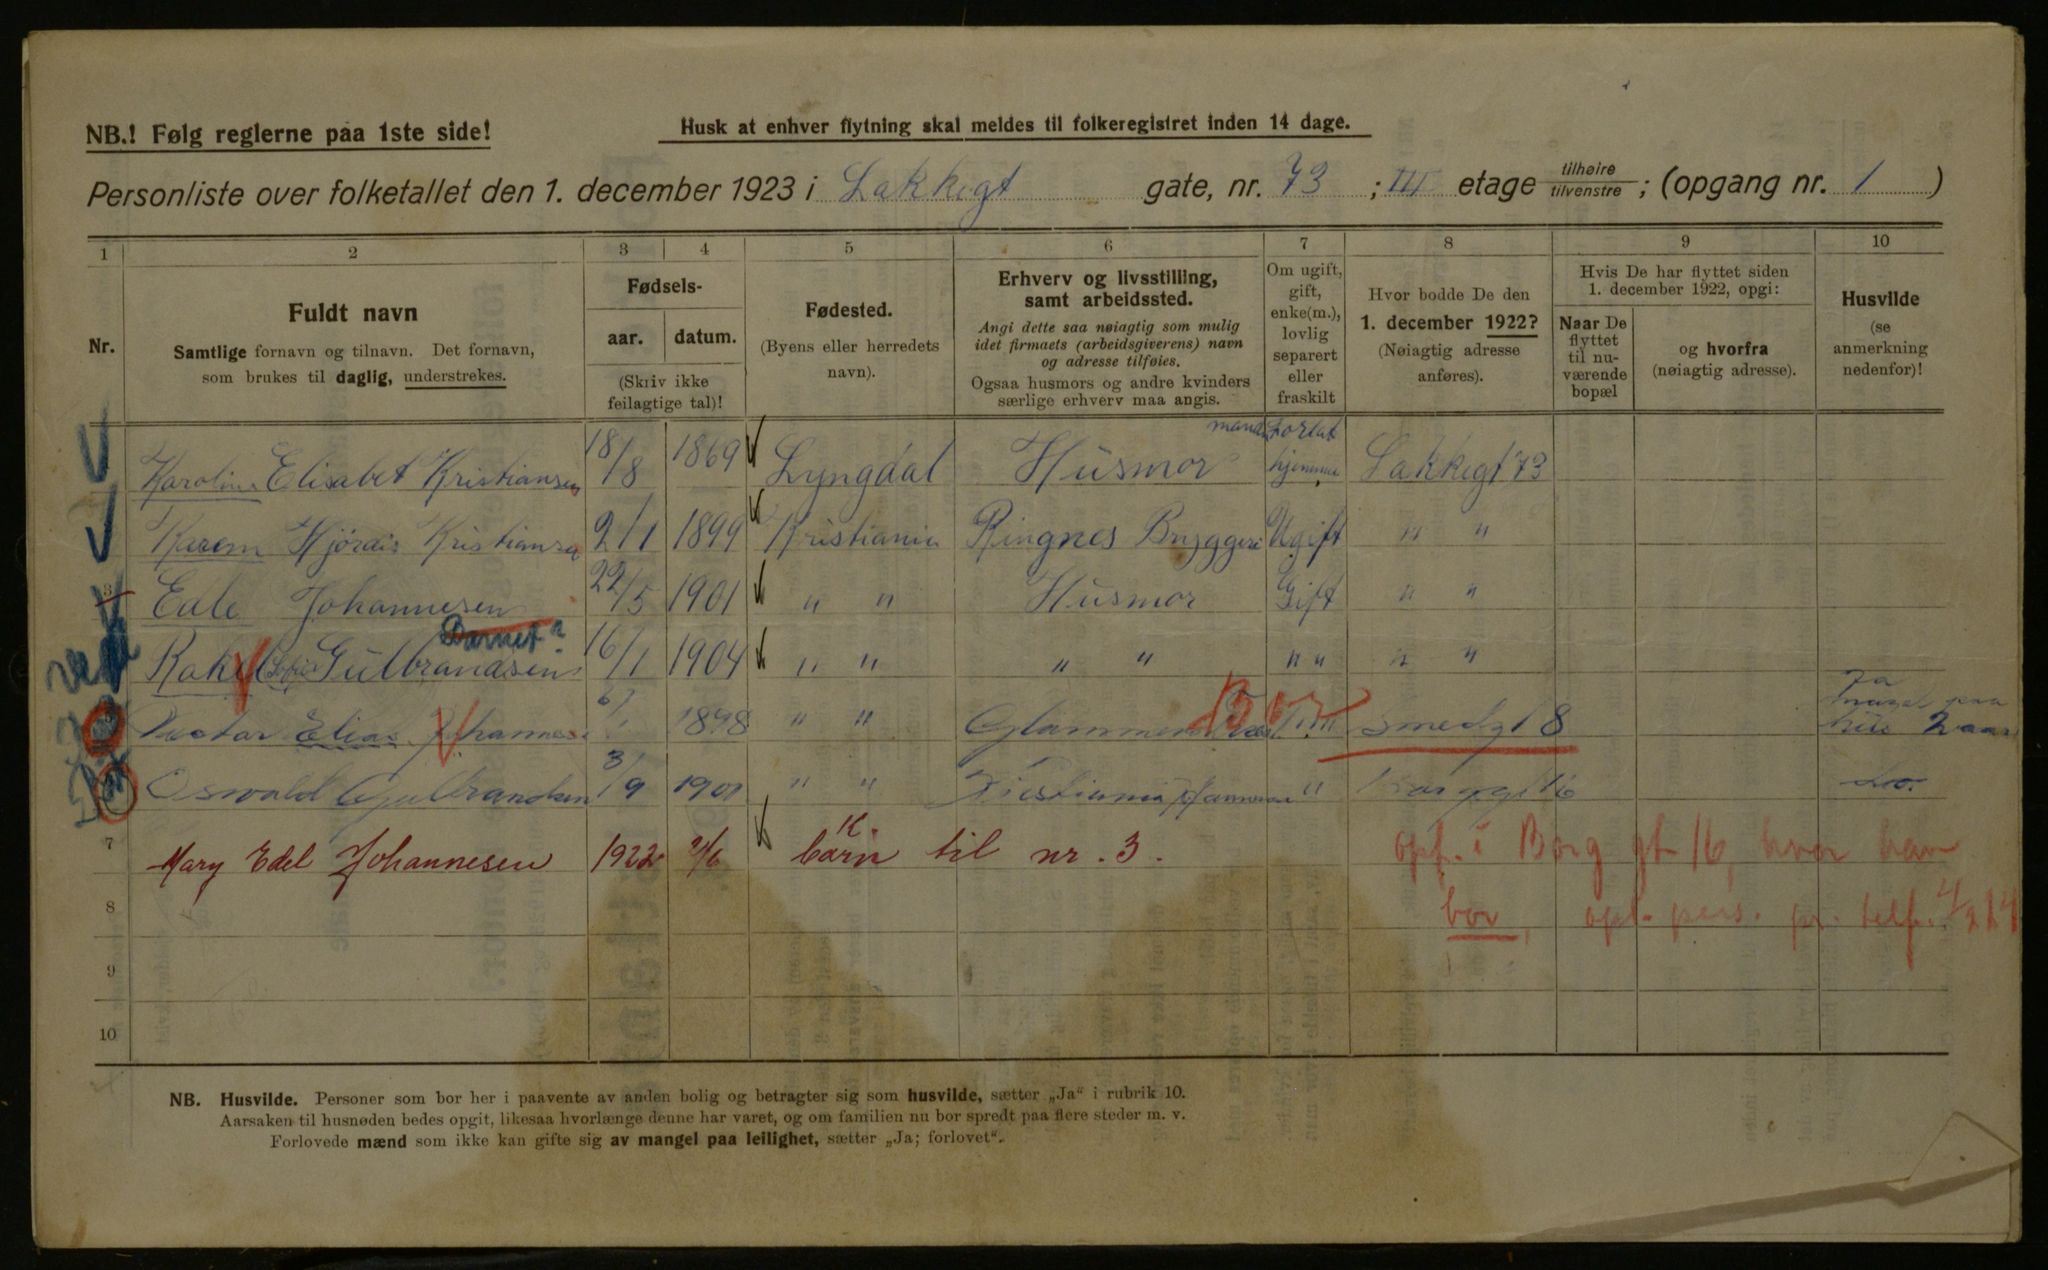 NB.! Følg reglerne paa 1ste side!
Husk at enhver flytning skal meldes til folkeregistret inden 14 dage.
Personliste over folketallet den 1. december 1923 i Lakkegt gate, nr. 73 ; III etage tilhøire tilvenstre ; (opgang nr. 1 )
1 2 3 4 5 6 7 8 9 10
Nr.
Fuldt navn
Samtlige fornavn og tilnavn. Det fornavn,
som brukes til daglig, understrekes.
Fødsels-
aar. datum.
(Skriv ikke
feilagtige tal)!
Fødested.
(Byens eller herredets
navn).
Erhverv og livsstilling,
samt arbeidssted.
Angi dette saa nøiagtig som mulig
idet firmaets (arbeidsgiverens) navn
og adresse tilføies.
Ogsaa husmors og andre kvinders
særlige erhverv maa angis.
Om ugift,
gift,
enke(m.),
lovlig
separert
eller
fraskilt
Hvor bodde De den
1. december 1922?
(Nøiagtig adresse
anføres).
Hvis De har flyttet siden
1. december 1922, opgi:
Naar De
flyttet
til nu-
værende
bopæl
og hvorfra
(nøiagtig adresse).
Husvilde
(se
anmerkning
nedenfor)!
Karoline Elisabet Kristiansen 18/8 1869 Lyngdal Husmor manden forlat hjemme Lakkegt 73
Karen Hjördis Kristiansen 2/1 1899 Kristiania Ringnes Bryggeri Ugift " "
3 Edle Johannesen 22/5 1901 " " Husmor Gift " "
Barnet?
Rakel Gulbrandsen 16/1 1904 " " " " " " " "
Elias Johannesen 6/1 1898 " " Bor Smedgt 8 Ja paa 2 aar
Oswald Gulbrandsen 3/9 1901 " " Kristiania " Borggt 16 do.
7 Mary Edel Johannesen 1922 2/6 K. barn til nr. 3.
opf. i Borg gt 16, hvor han
8 bor, opl. pers. pr. telf. 4/2 24
9
10
NB. Husvilde. Personer som bor her i paavente av anden bolig og betragter sig som husvilde, sætter „Ja“ i rubrik 10.
Aarsaken til husnøden bedes opgit, likesaa hvorlænge denne har varet, og om familien nu bor spredt paa flere steder m. v.
Forlovede mænd som ikke kan gifte sig av mangel paa leilighet, sætter „Ja; forlovet“.